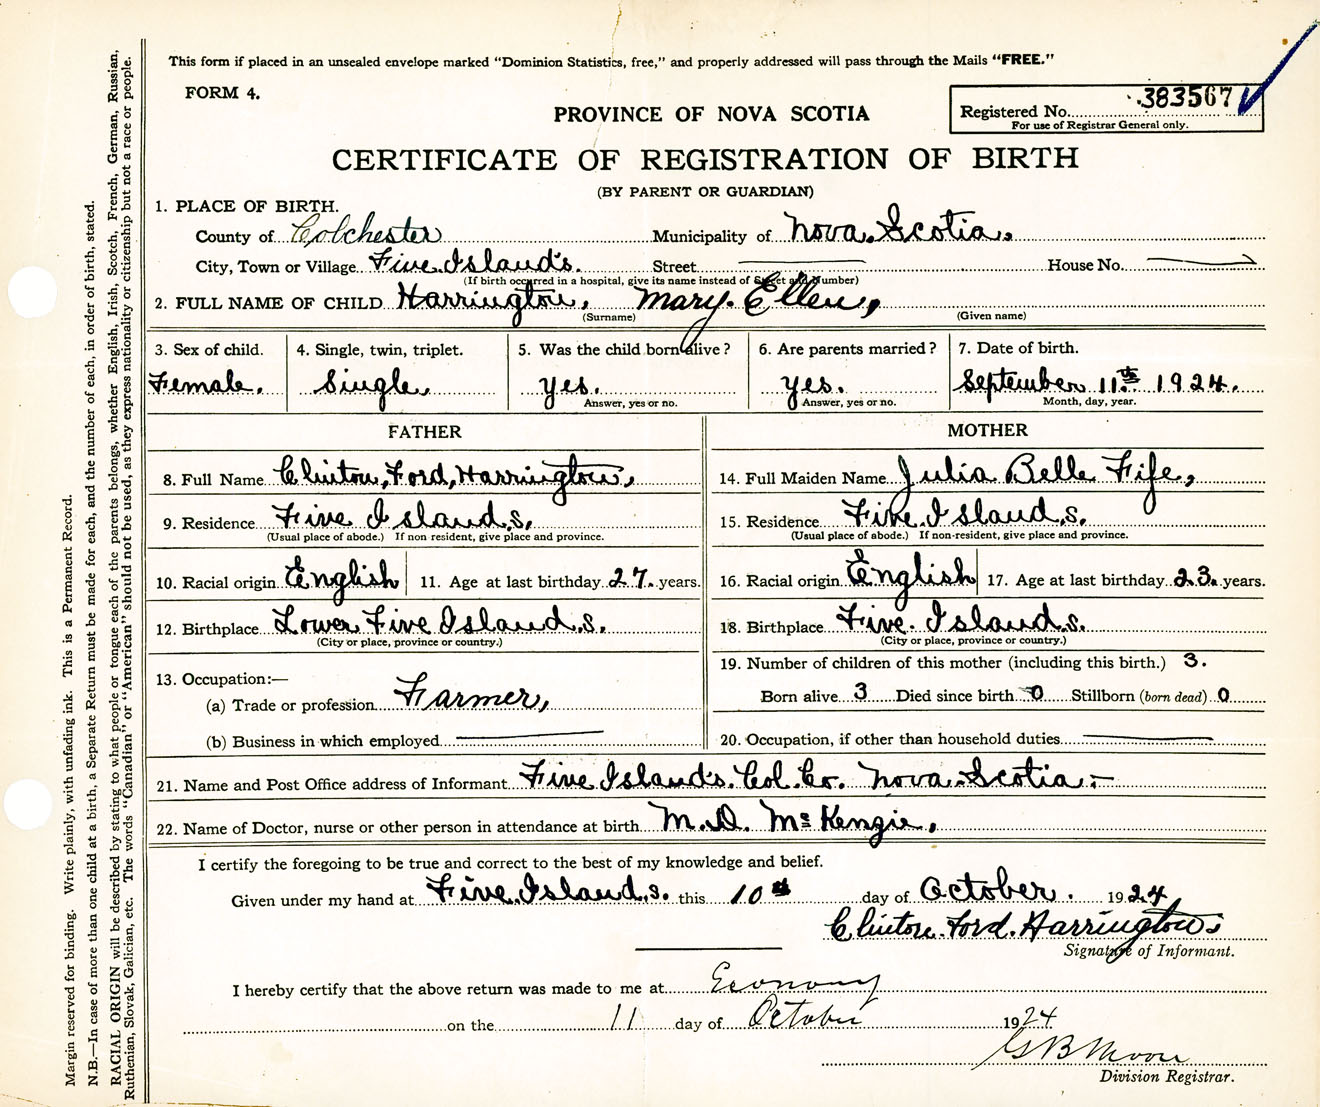 This form if placed in an unsealed envelope marked "Dominion Statistics, free," and properly addressed will pass through the Mails "FREE."
FORM 4.
PROVINCE OF NOVA SCOTIA
Registered No. 383567
For use of Registrar General only.
CERTIFICATE OF REGISTRATION OF BIRTH
(BY PARENT OR GUARDIAN)
1. PLACE OF BIRTH.
County of Colchester Municipality of Nova Scotia.
City, Town or Village Five Islands. Street House No.
(If birth occurred in a hospital, give its name instead of Street and Number)
2. FULL NAME OF CHILD Harrington, Mary Ellen,
(Surname) (Given name)
3. Sex of child. 4. Single, twin, triplet. 5. Was the child born alive? 6. Are parents married? 7. Date of birth.
Female. Single. yes. yes. September 11th 1924.
Answer, yes or no. Answer, yes or no. Month, day, year.
FATHER MOTHER
8. Full Name Clinton, Ford, Harrington, 14. Full Maiden Name Julia Belle Fife,
9. Residence Five Islands. 15. Residence Five Islands.
(Usual place of abode.) If non resident, give place and province. (Usual place of abode.) If non-resident, give place and province.
10. Racial origin English 11. Age at last birthday 27. years. 16. Racial origin English 17. Age at last birthday 23. years.
12. Birthplace Lower Five Islands. 18. Birthplace Five Islands.
(City or place, province or country.) (City or place, province or country.)
13. Occupation:— 19. Number of children of this mother (including this birth.) 3.
(a) Trade or profession Farmer, Born alive 3 Died since birth 0 Stillborn (born dead) 0
(b) Business in which employed 20. Occupation, if other than household duties
21. Name and Post Office address of Informant Five Islands. Col. Co. Nova Scotia.-
22. Name of Doctor, nurse or other person in attendance at birth M.D. McKenzie,
I certify the foregoing to be true and correct to the best of my knowledge and belief.
Given under my hand at Five Islands. this 10th day of October. 1924
Clinton Ford Harrington
Signature of Informant.
I hereby certify that the above return was made to me at Economy
on the 11 day of October 1924
G B Moore
Division Registrar.
Margin reserved for binding. Write plainly, with unfading ink. This is a Permanent Record.
N.B.—In case of more than one child at a birth, a Separate Return must be made for each, and the number of each, in order of birth, stated.
RACIAL ORIGIN will be described by stating to what people or tongue each of the parents belongs, whether English, Irish, Scotch, French, German, Russian,
Ruthenian, Slovak, Galician, etc. The words "Canadian" or "American" should not be used, as they express nationality or citizenship but not a race or people.